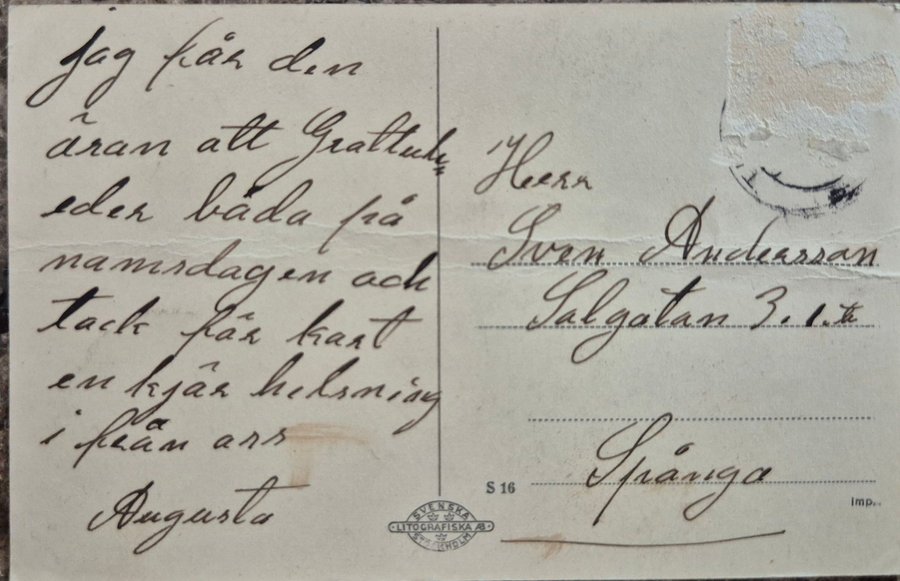 Jag får den
äran att Grattule=
eder båda på
namsdagen ock
tack för kort
en kjär helsning
i från oss
Augusta
Herr
Sven Andersson
Solgatan 3. 1. tr
Spånga
S 16
Imp.
SVENSKA
LITOGRAFISKA AB
STOCKHOLM